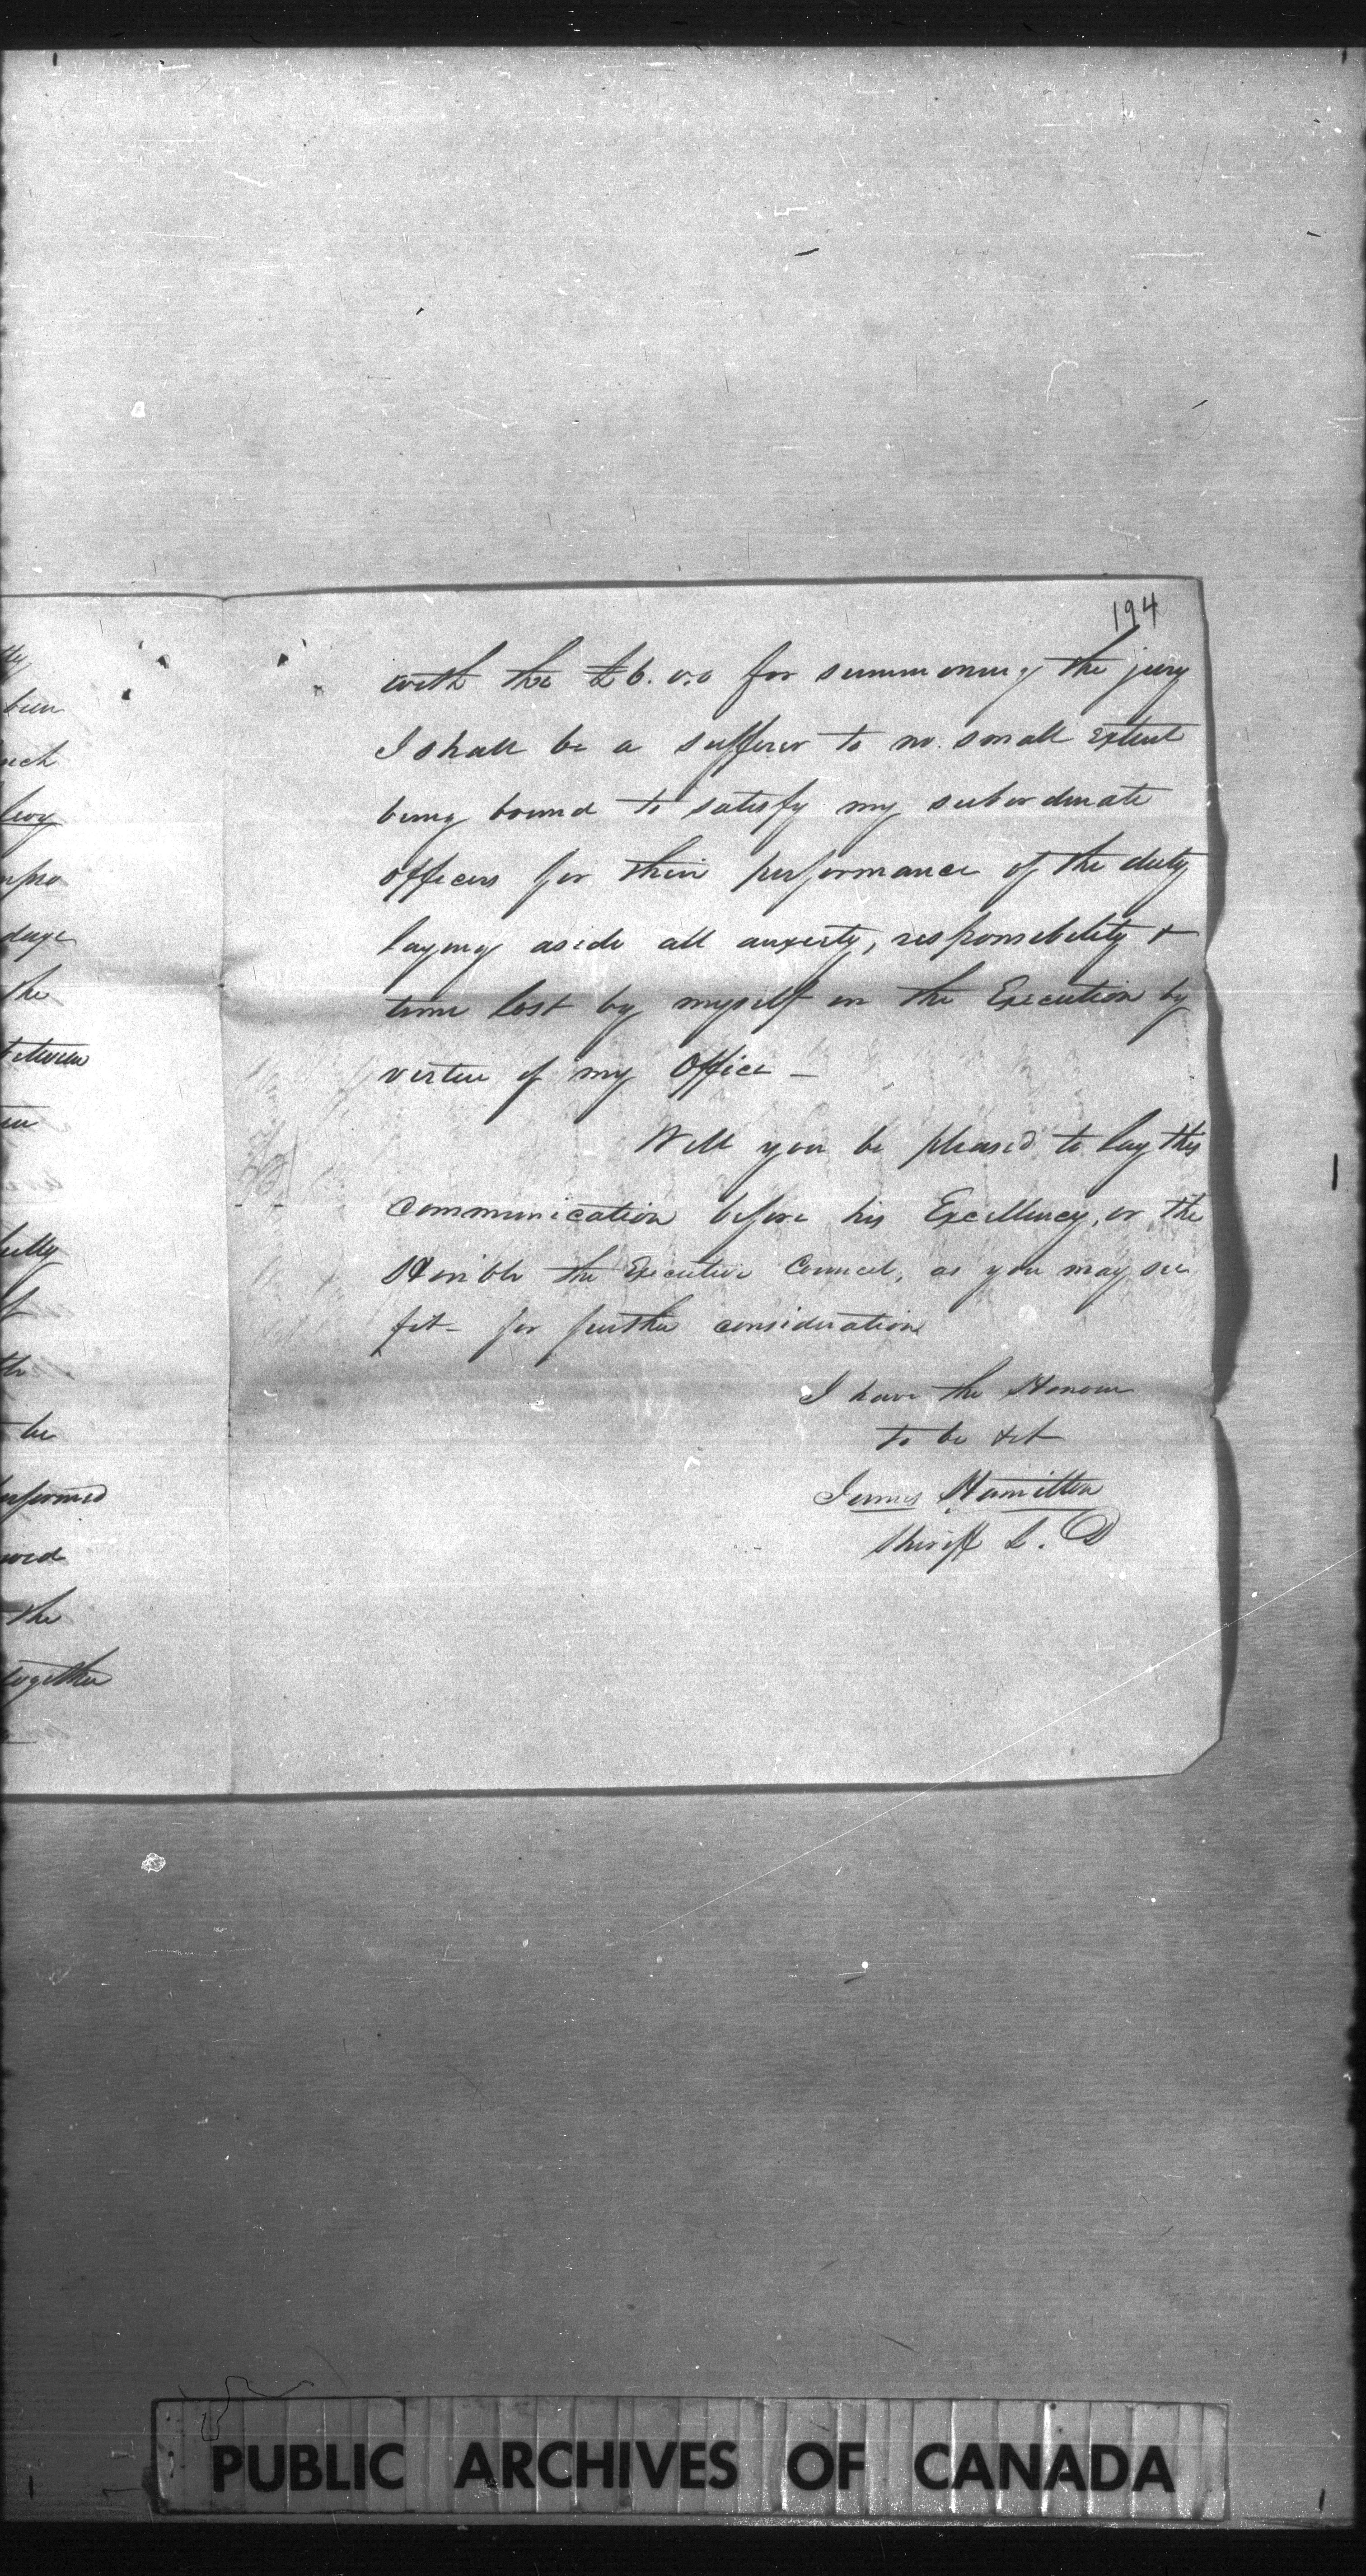 194
with the £6.0.0 for summoning the jury
I shall be a sufferer to no small extent
being bound to satisfy my subordinate
officers for their performance of the duty
laying aside all anxiety, responsibility &
time lost by myself in the Execution by
vertue of my Office —
Will you be pleased to lay this
communication before his Excellency, or the
Honble the Executive Council, as you may see
fit - for further consideration
I have the Honour
to be &ct
James Hamilton
Sheriff L. D
been
the
between
be
the
together
PUBLIC ARCHIVES OF CANADA